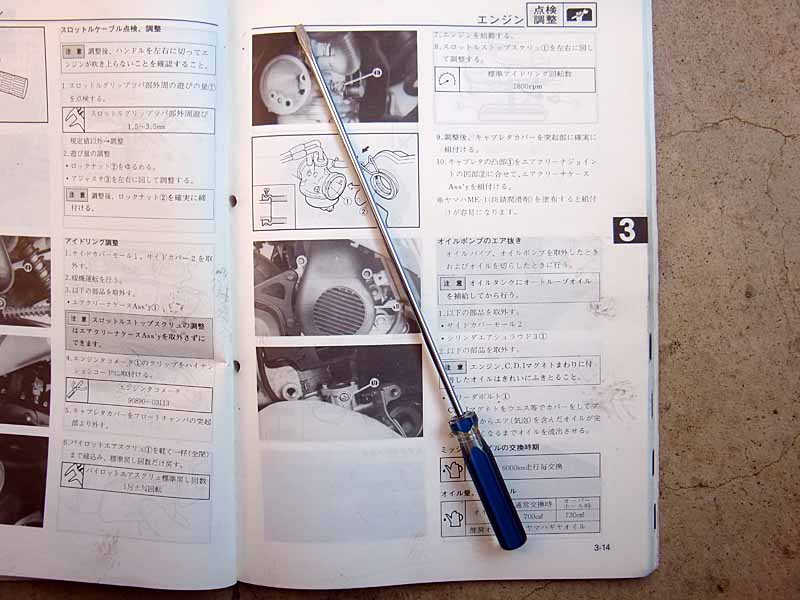 エンジン
点検
調整
スロットルケーブル点検、調整
注意 調整後、ハンドルを左右に切ってエ
ンジンが吹き上らないことを確認すること。
1. スロットルグリップツバ部外周の遊びの量①
を点検する。
スロットルグリップツバ部外周遊び
1.5〜3.5mm
規定値以外→調整
2. 遊び量の調整
・ロックナット②をゆるめる。
・アジャスタ③を左右に回して調整する。
注意 調整後、ロックナット②を確実に締
付ける。
アイドリング調整
1. サイドカバーモール1、サイドカバー2を取
外す。
2. 暖機運転を行う。
3. 以下の部品を取外す。
・エアクリーナケースAss'y①
注意 スロットルストップスクリュの調整
はエアクリーナケースAss'yを取外さずに
できます。
4. エンジンタコメータ①のクリップをハイテン
ションコードに取付ける。
エンジンタコメータ
90890-03113
5. キャブレタカバーをフロートチャンバの突起
部より外す。
6. パイロットエアスクリュ①を軽く一杯(全閉)
まで締込み、標準戻し回数だけ戻す。
パイロットエアスクリュ標準戻し回数
回転
7. エンジンを始動する。
8. スロットルストップスクリュ①を左右に回し
て調整する。
標準アイドリング回転数
1800rpm
9. 調整後、キャブレタカバーを突起部に確実に
組付ける。
10. キャブレタの凸部①をエアクリーナジョイン
トの凹部②に合せて、エアクリーナケース
Ass'yを組付ける。
※ヤマハME-1(防錆潤滑剤)を塗布すると組付
けが容易になります。
3
オイルポンプのエア抜き
オイルパイプ、オイルポンプを取外したとき
およびオイルを切らしたときに行う。
注意 オイルタンクにオートルーブオイル
を補給してから行う。
1. 以下の部品を取外す。
・サイドカバーモール2
・シリンダエアシュラウド3①
2. 以下の部品を取外す。
注意 エンジン、C.D.Iマグネトまわりに付
したオイルはきれいにふきとること。
ーダボルト①
マグネトをウエス等でカバーをしてブ
からエア(気泡)を含んだオイルが完
くなるまでオイルを流出させる。
ミッシ イルの交換時期
6000km走行毎交換
オイル量、 ル
オイ 通常交換時 オーバーホール時
700cm³ 730cm³
推奨オ ヤマハギヤオイル
3-14